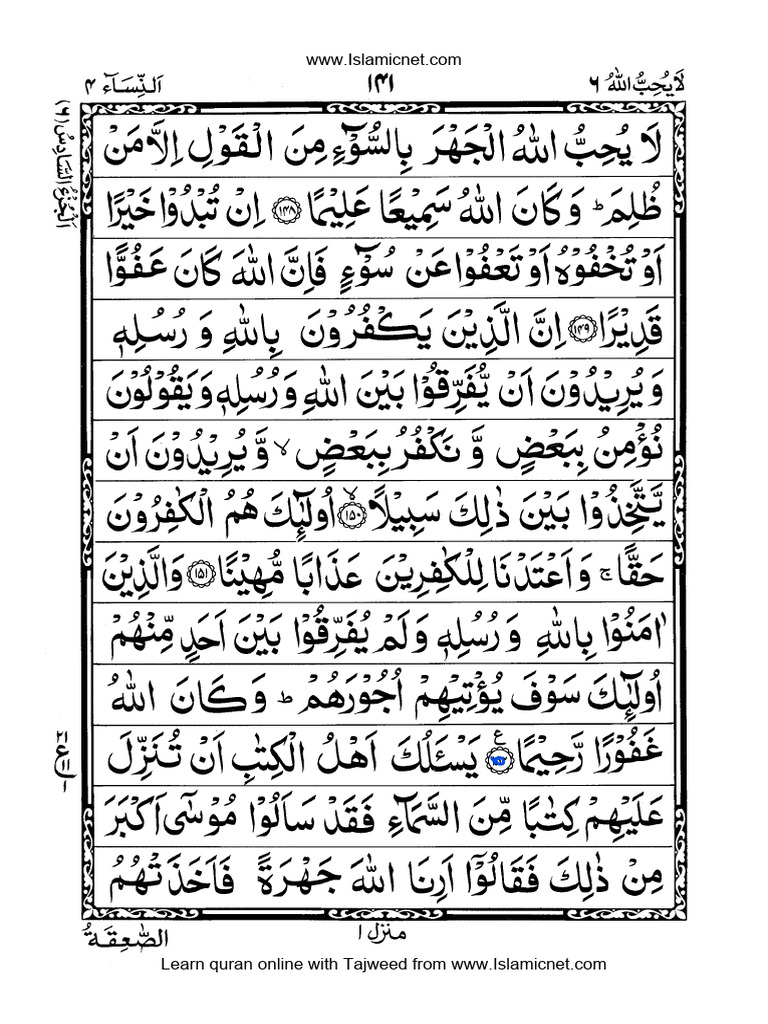 www.Islamicnet.com
لَا يُحِبُّ اللّٰهُ ٦
١٣١
اَلنِّسَآء ٤
اَلْجُزْءُ السَّادِسُ (٦)
لَا يُحِبُّ اللّٰهُ الْجَهْرَ بِالسُّوْٓءِ مِنَ الْقَوْلِ اِلَّا مَنْ
ظُلِمَ ؕ وَ كَانَ اللّٰهُ سَمِيْعًا عَلِيْمًا ۝١٤٨ اِنْ تُبْدُوْا خَيْرًا
اَوْ تُخْفُوْهُ اَوْ تَعْفُوْا عَنْ سُوْٓءٍ فَاِنَّ اللّٰهَ كَانَ عَفُوًّا
قَدِيْرًا ۝١٤٩ اِنَّ الَّذِيْنَ يَكْفُرُوْنَ بِاللّٰهِ وَ رُسُلِهٖ
وَ يُرِيْدُوْنَ اَنْ يُّفَرِّقُوْا بَيْنَ اللّٰهِ وَ رُسُلِهٖ وَ يَقُوْلُوْنَ
نُؤْمِنُ بِبَعْضٍ وَّ نَكْفُرُ بِبَعْضٍ ۙ وَّ يُرِيْدُوْنَ اَنْ
يَّتَّخِذُوْا بَيْنَ ذٰلِكَ سَبِيْلًا ۝١٥٠ۙ اُولٰٓئِكَ هُمُ الْكٰفِرُوْنَ
حَقًّا ۚ وَ اَعْتَدْنَا لِلْكٰفِرِيْنَ عَذَابًا مُّهِيْنًا ۝١٥١ وَ الَّذِيْنَ
اٰمَنُوْا بِاللّٰهِ وَ رُسُلِهٖ وَ لَمْ يُفَرِّقُوْا بَيْنَ اَحَدٍ مِّنْهُمْ
اُولٰٓئِكَ سَوْفَ يُؤْتِيْهِمْ اُجُوْرَهُمْ ؕ وَ كَانَ اللّٰهُ
غَفُوْرًا رَّحِيْمًا ۝١٥٢ ع يَسْـَٔلُكَ اَهْلُ الْكِتٰبِ اَنْ تُنَزِّلَ
عَلَيْهِمْ كِتٰبًا مِّنَ السَّمَآءِ فَقَدْ سَاَلُوْا مُوْسٰۤى اَكْبَرَ
مِنْ ذٰلِكَ فَقَالُوْۤا اَرِنَا اللّٰهَ جَهْرَةً فَاَخَذَتْهُمُ
الصّٰعِقَةُ
منزل ١
Learn quran online with Tajweed from www.Islamicnet.com